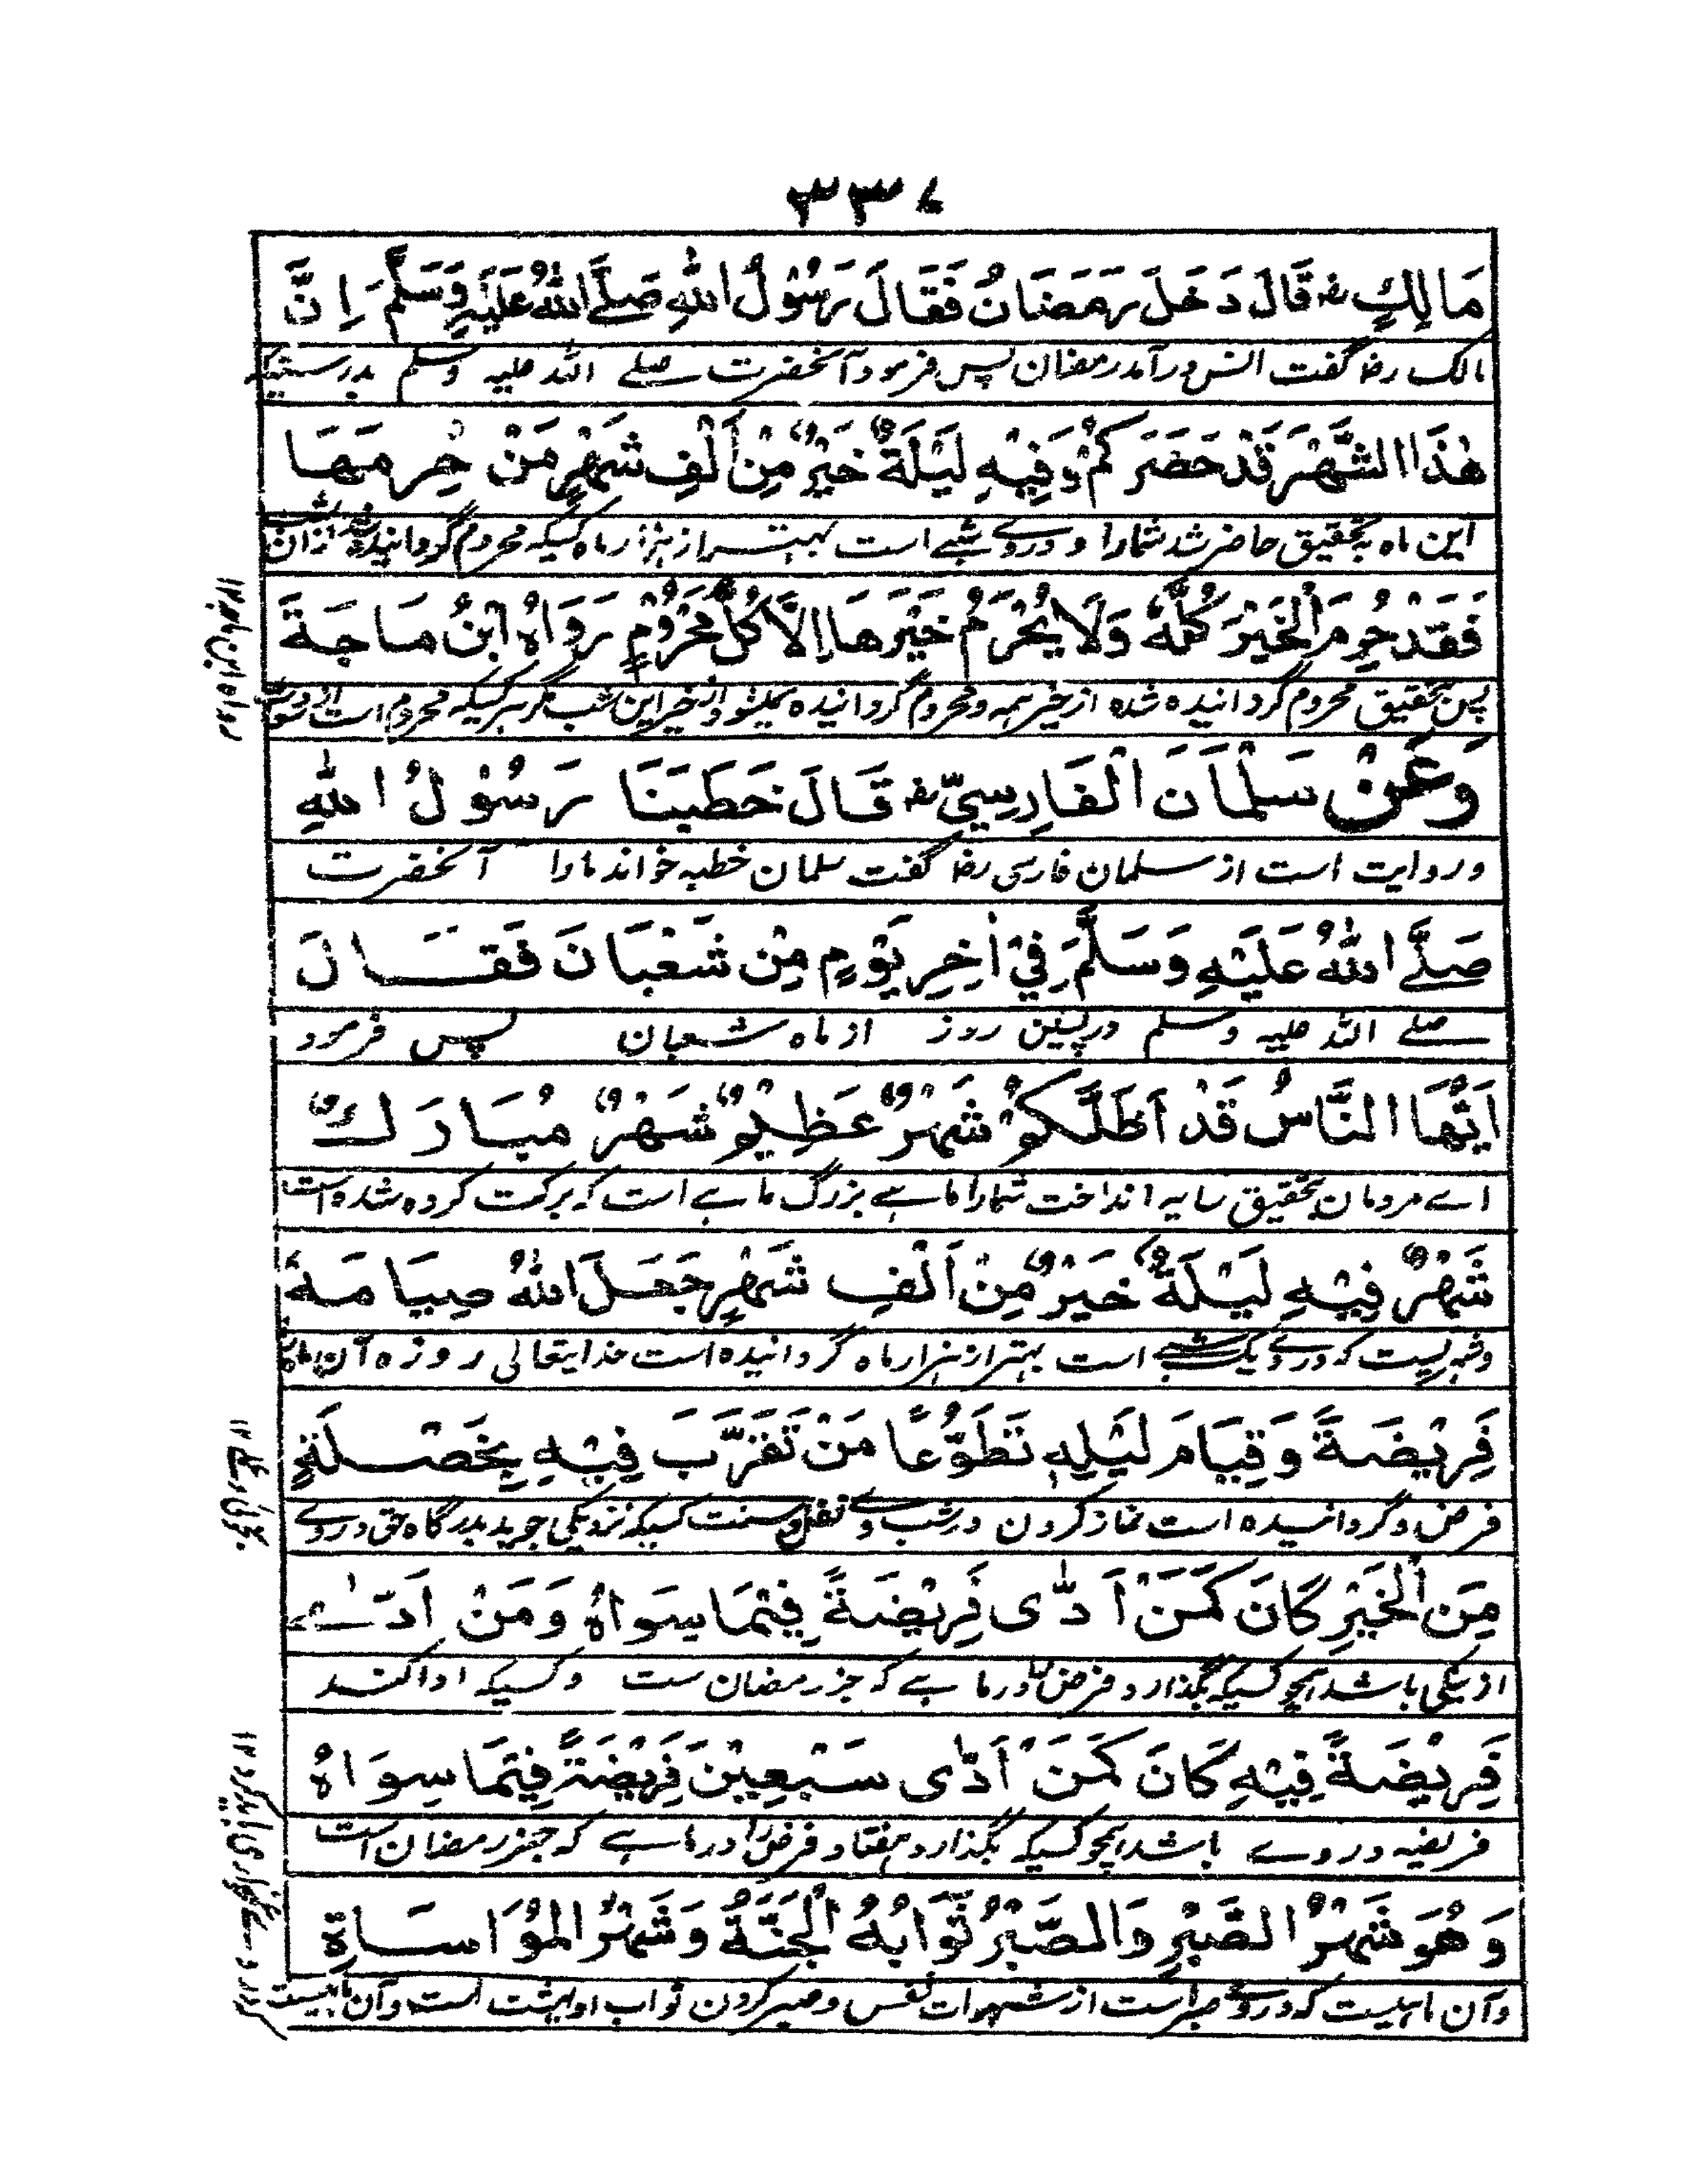 ٣٣٤
مَالِكٍ رض قَالَ دَخَلَ رَمَضَانُ فَقَالَ رَسُوْلُ اللهِ صَلَّے اللهُ عَلَيْهِ وَسَلَّمَ اِنَّ
مالک رض گفت انس در آمد رمضان پس فرمود آنحضرت صلے اللہ علیہ وسلم بدرستیکہ
هٰذَا الشَّهْرَ قَدْ حَضَرَكُمْ وَفِيْهِ لَيْلَةٌ خَيْرٌ مِّنْ اَلْفِ شَهْرٍ مَنْ حُرِمَهَا
این ماہ بتحقیق حاضر شد شمارا و دروے شبے است بہتر از ہزار ماہ کسیکہ محروم گردانیدہ شد ازان شب
فَقَدْ حُرِمَ الْخَيْرَ كُلَّهٗ وَلَا يُحْرَمُ خَيْرَهَا اِلَّا كُلُّ مَحْرُوْمٍ رَوَاهُ ابْنُ مَاجَةَ
پس بتحقیق محروم گردانیدہ شدہ از خیر ہمہ و محروم گردانیدہ نمیشود از خیر این شب مگر ہر کسیکہ محروم است
وَعَنْ سَلْمَانَ الْفَارِسِيِّ رض قَالَ خَطَبَنَا رَسُوْلُ اللهِ
و روایت است از سلمان فارسی رض گفت سلمان خطبہ خواند مارا آنحضرت
صَلَّے اللهُ عَلَيْهِ وَسَلَّمَ فِيْ اٰخِرِ يَوْمٍ مِنْ شَعْبَانَ فَقَالَ
صلے اللہ علیہ وسلم در پسین روز از ماہ شعبان پس فرمود
اَيُّهَا النَّاسُ قَدْ اَظَلَّكُمْ شَهْرٌ عَظِيْمٌ شَهْرٌ مُبَارَكٌ
اے مردمان بتحقیق سایہ انداخت شمارا ماہے بزرگ ماہے است کہ برکت کردہ شدہ است
شَهْرٌ فِيْهِ لَيْلَةٌ خَيْرٌ مِّنْ اَلْفِ شَهْرٍ جَعَلَ اللهُ صِيَامَهٗ
و شہریست کہ دروے یک شبے است بہتر از ہزار ماہ گردانیدہ است خدایتعالی روزہ آن ماہ
فَرِيْضَةً وَقِيَامَ لَيْلِهٖ تَطَوُّعًا مَنْ تَقَرَّبَ فِيْهِ بِخَصْلَةٍ
فرض و گردانیدہ است نماز کردن در شب وے نفل و سنت کسیکہ نزدیکی جوید بدرگاہ حق دروے
مِنَ الْخَيْرِ كَانَ كَمَنْ اَدّٰى فَرِيْضَةً فِيْمَا سِوَاهُ وَمَنْ اَدّٰے
از نیکی باشد ہمچو کسیکہ بگذارد فرض را در ماہے کہ جز رمضان ست و کسیکہ ادا کند
فَرِيْضَةً فِيْهِ كَانَ كَمَنْ اَدّٰى سَبْعِيْنَ فَرِيْضَةً فِيْمَا سِوَاهُ
فریضہ دروے باشد ہمچو کسیکہ بگذارد ہفتاد فرض را در ماہے کہ جز رمضان است
وَهُوَ شَهْرُ الصَّبْرِ وَالصَّبْرُ ثَوَابُهُ الْجَنَّةُ وَشَهْرُ الْمُوَاسَاةِ
و آن ماہیست کہ دروے صبر است از شہوات نفس و صبر کردن ثواب او بہشت است و آن ماہیست